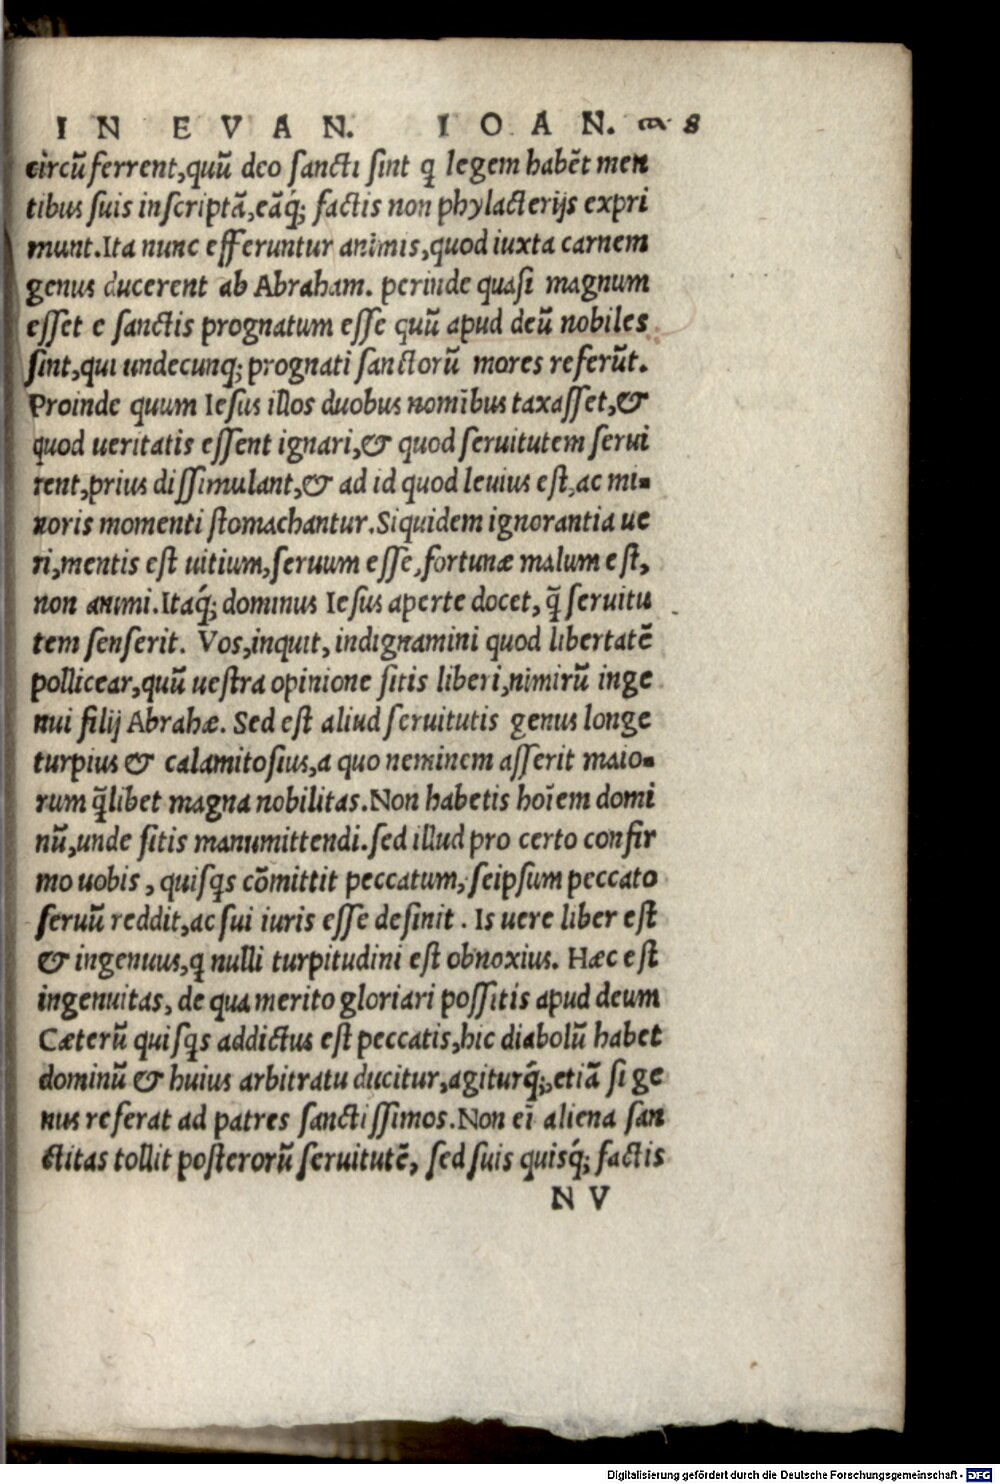 IN EVAN. IOAN. ca. 8
circũferrent,quũ deo sancti sint q̃ legem habẽt men
tibus suis inscriptã,eãq́; factis non phylacterijs expri
munt.Ita nunc efferuntur animis,quod iuxta carnem
genus ducerent ab Abraham. perinde quasi magnum
esset e sanctis prognatum esse quũ apud deũ nobiles
sint,qui undecunq; prognati sanctorũ mores referũt.
Proinde quum Iesus illos duobus nomĩbus taxasset,&
quod ueritatis essent ignari,& quod seruitutem serui
rent,prius dissimulant,& ad id quod leuius est,ac mi-
noris momenti stomachantur.Siquidem ignorantia ue
ri,mentis est uitium,seruum esse,fortunæ malum est,
non animi.Itaq́; dominus Iesus aperte docet, q̃ seruitu
tem senserit. Vos,inquit, indignamini quod libertatẽ
pollicear,quũ uestra opinione sitis liberi,nimirũ inge
nui filij Abrahæ. Sed est aliud seruitutis genus longe
turpius & calamitosius,a quo neminem asserit maio-
rum q̃libet magna nobilitas.Non habetis hoĩem domi
nũ,unde sitis manumittendi.sed illud pro certo confir
mo uobis, quisq̃s cõmittit peccatum, seipsum peccato
seruũ reddit,ac sui iuris esse desinit. Is uere liber est
& ingenuus,q̃ nulli turpitudini est obnoxius. Hæc est
ingenuitas, de qua merito gloriari possitis apud deum
Cæterũ quisq̃s addictus est peccatis,hic diabolũ habet
dominũ & huius arbitratu ducitur,agiturq́;,etiã si ge
nus referat ad patres sanctissimos.Non eĩ aliena san
ctitas tollit posterorũ seruitutẽ, sed suis quisq́; factis
N V
Digitalisierung gefördert durch die Deutsche Forschungsgemeinschaft - DFG